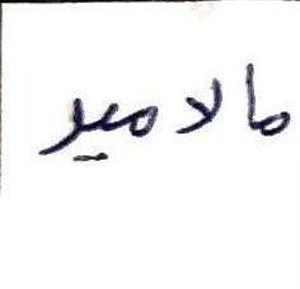 مالامیر